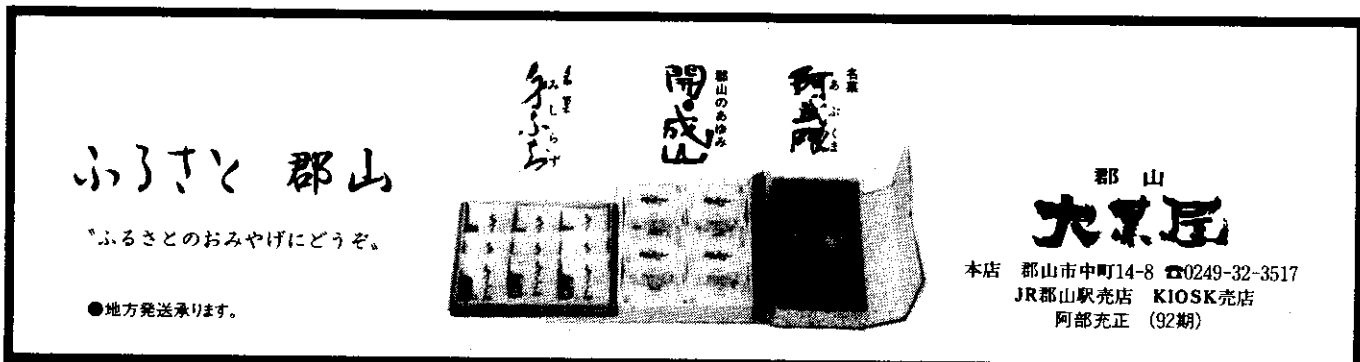 ふるさと 郡山
〝ふるさとのおみやげにどうぞ〟
●地方発送承ります。
名菓
みしらず
身不知
郡山のあゆみ
開成山
名菓
あぶくま
阿武隈
郡山
大黒屋
本店 郡山市中町14-8 ☎0249-32-3517
JR郡山駅売店 KIOSK売店
阿部充正 (92期)